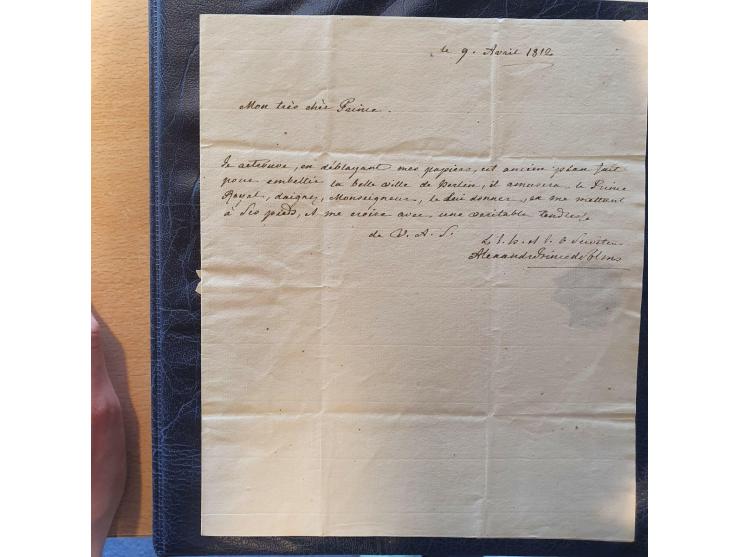 le 9. Avril 1812
Mon très chèr Prince.
Je retrouve, en déblayant mes papiers, cet ancien plan fait
pour embellir la belle ville de Berlin, il amusera le Prince
Royal, daignez, Monseigneur, le lui donner, en me mettant
à Ses pieds, & me croire avec une veritable tendresse
de V. A. S.
Le t. h. et t. o Serviteur
Alexandre Prince de